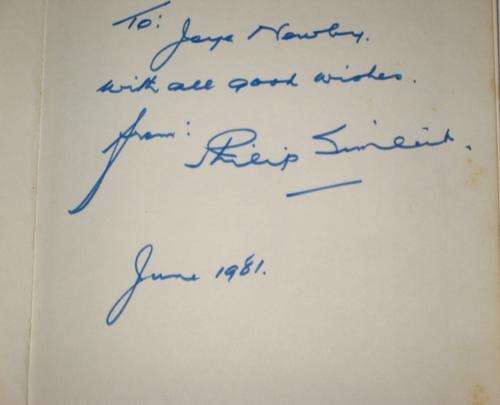 To:
Jaye Newby.
with all good wishes.
from: Philip Sinclair.
June 1981.